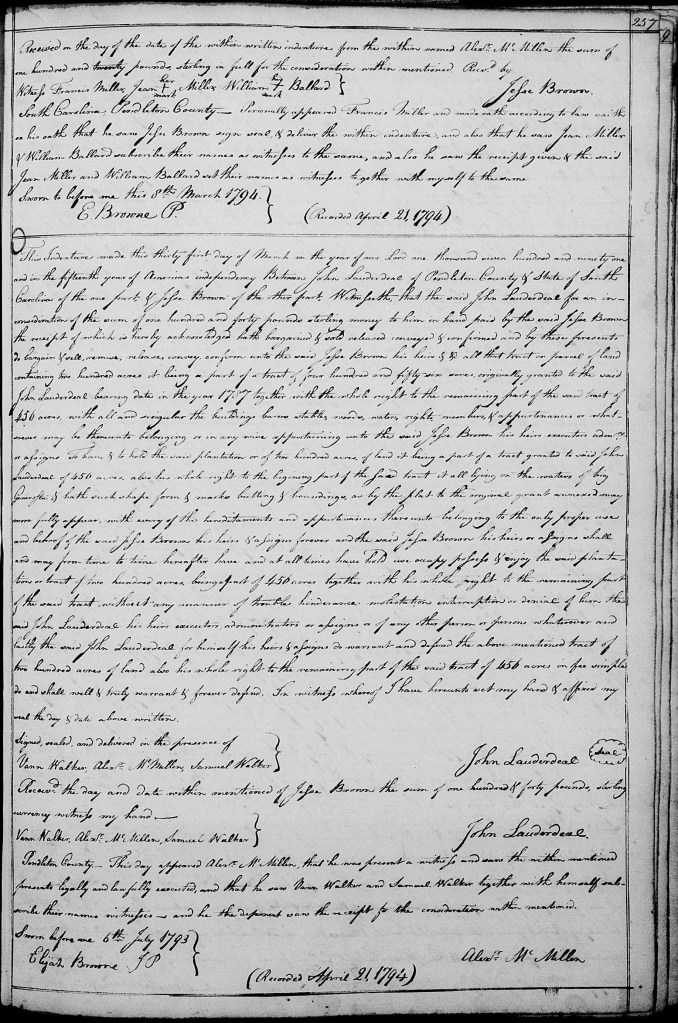 257
Received on the day of the date of the within written indenture from the within named Alexr. Mc Millen the sum of
one hundred and twenty pounds sterling in full for the consideration within mentioned. Recd. by
Witness Francis Miller, Jean her + mark Miller William his + mark Ballard } Jesse Brown.
South Carolina Pendleton County — Personally appeared Francis Miller and made oath according to law saith
on his oath that he saw Jesse Brown sign seal & deliver the within indenture, and also that he saw Jean Miller
& William Ballard subscribe their names as witnesses to the same, and also he saw the receipt given & the said
Jean Miller and William Ballard set their names as witnesses to gether with myself to the same
Sworn to before me this 8th March 1794.
E. Browne P. } (Recorded April 21, 1794)
This Indenture made this thirty first day of March in the year of our Lord one thousand seven hundred and ninety one
and in the fifteenth year of Americas independency Between John Lauderdeal of Pendleton County & State of South
Carolina of the one part & Jesse Brown of the other part, Witnesseth, that the said John Lauderdeal for an in
consideration of the sum of one hundred and forty pounds sterling money to him in hand paid by the said Jesse Brown
the receipt of which is hereby acknowledged hath bargained & sold released conveyed & confirmed and by these presents
do bargain & sell, remise, release, convey, confirm unto the said Jesse Brown his heirs & all that tract or parcel of land
containing two hundred acres it being a part of a tract of four hundred and fifty six acres, originally granted to the said
John Lauderdeal bearing date in the year 1787 together with the whole right to the remaining part of the said tract of
456 acres, with all and singular the buildings barns stables, woods, waters, rights, members, & appurtenances or what-
soever may be thereunto belonging or in any wise appertaining unto the said Jesse Brown his heirs executors admrs.
or assigns To have & to hold the said plantation or of two hundred acres, of land it being a part of a tract granted to said John
Lauderdeal of 450 acres also his whole right to the begining part of the said tract it all lying on the waters of big
Generostee & hath such shape form & marks butting & boundings, as by the plat to the original grant annexed may
more fully appear, with every of the hereditaments and appurtenances thereunto belonging to the only proper use
and behoof of the said Jesse Brown his heirs & assigns forever and the said Jesse Brown his heirs, or assigns shall
and may from time to time hereafter have and at all times have hold use occupy possess & enjoy the said planta-
tion or tract of two hundred acres, being a part of 450 acres together with his whole right to the remaining part
of the said tract without any manner of trouble hinderance molestation interruption or denial of him the
said John Lauderdeal his heirs executors administrators or assigns or of any other person or persons whatsoever and
lastly the said John Lauderdeal for himself his heirs & assigns do warrant and defend the above mentioned tract of
two hundred acres of land also his whole right to the remaining part of the said tract of 456 acres in fee simple
do and shall well & truly warrant & forever defend. In witness whereof I have hereunto set my hand & affixed my
seal the day & date above written.
Signed, sealed, and delivered in the presence of
Vann Walker, Alexr. McMillen, Samuel Walker } John Lauderdeal (seal)
Receivd. the day and date within mentioned of Jesse Brown the sum of one hundred & forty pounds, sterling
currency witness my hand —
Vann Walker, Alexr. Mc Millen, Samuel Walker } John Lauderdeal.
Pendleton County — This day appeared Alexr. Mc Millen, that he was present a witness and saw the within mentioned
presents legally and lawfully executed, and that he saw Vann Walker and Samuel Walker together with hemself sub-
scribe their names witnesses — and he the deponent saw the receipt for the consideration within mentioned.
Sworn before me 6th July 1793
Elijah Browne J P } Alexr. Mc Millen
(Recorded April 21, 1794)